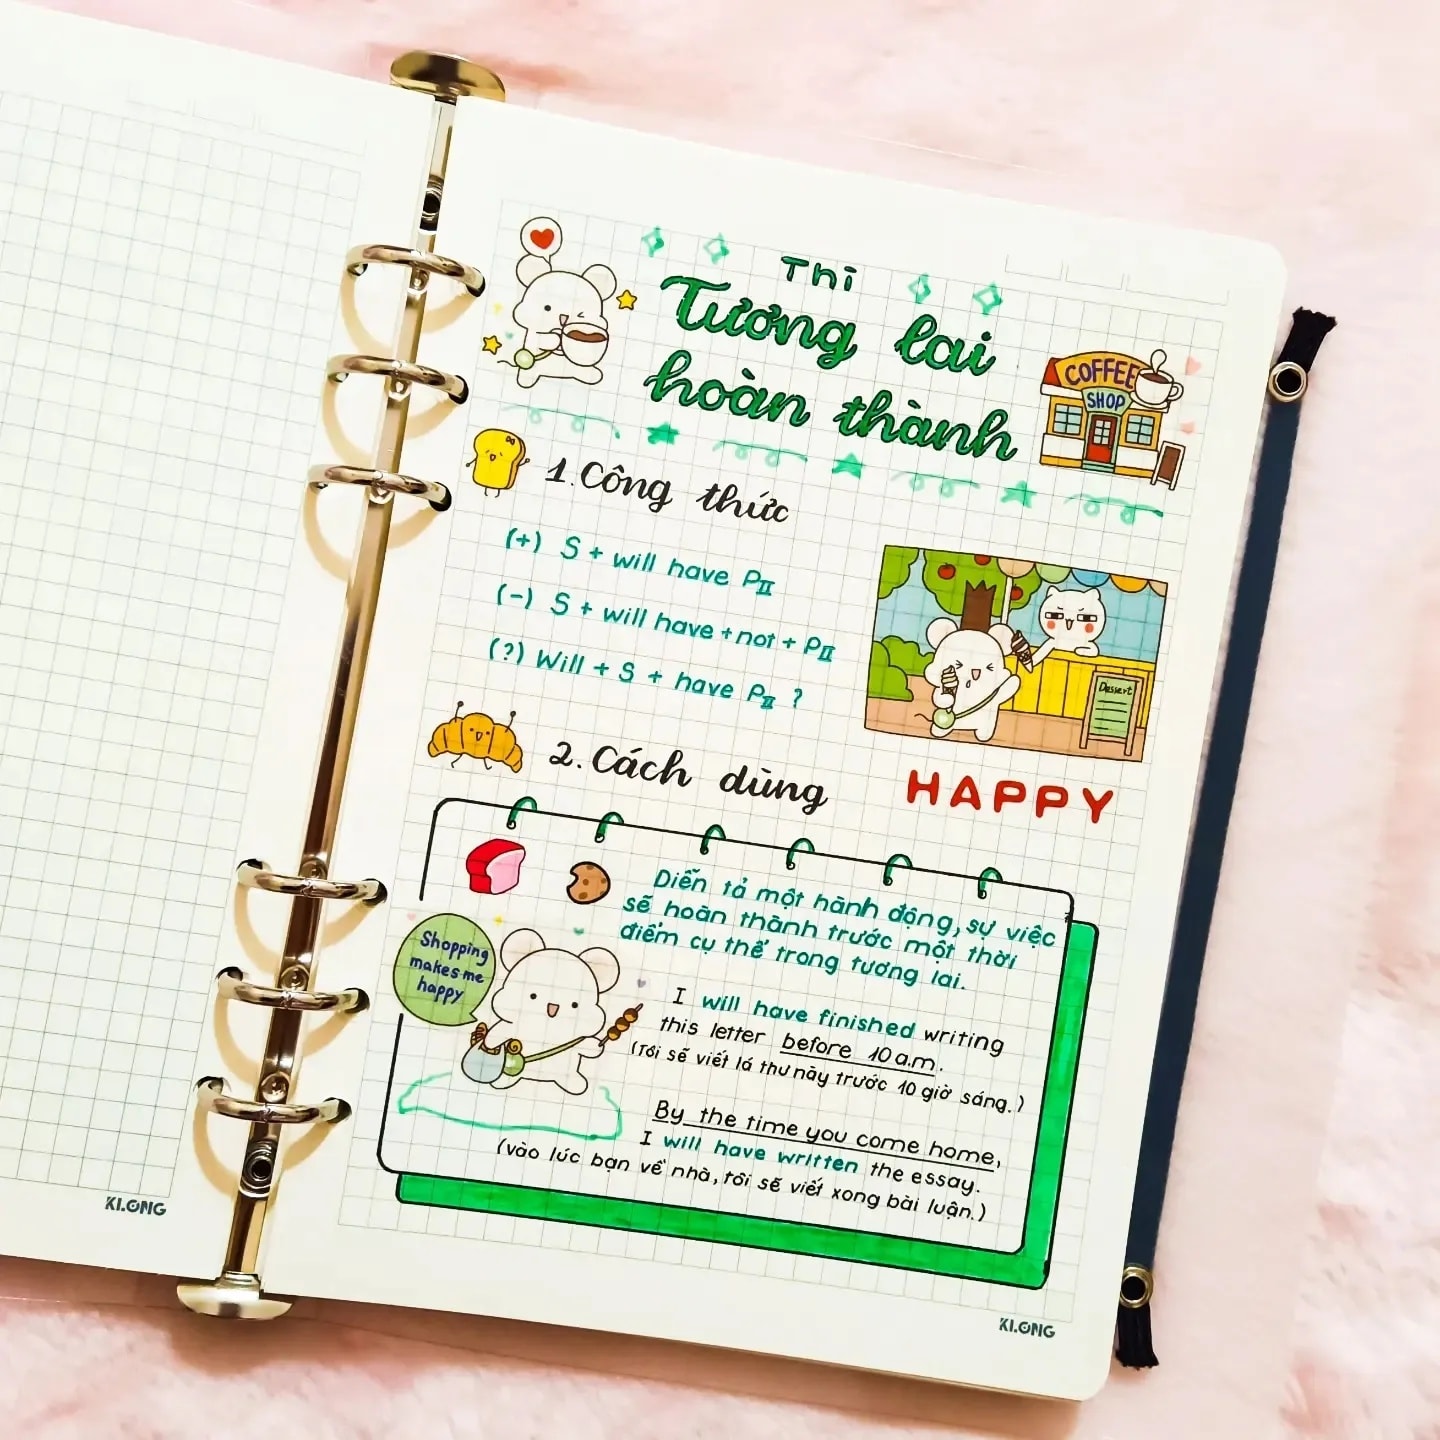 Thì
Tương lai
hoàn thành
COFFEE
SHOP
1. Công thức
(+) S + will have PII
(-) S + will have + not + PII
(?) Will + S + have PII ?
Dessert
HAPPY
2. Cách dùng
Diễn tả một hành động, sự việc
sẽ hoàn thành trước một thời
điểm cụ thể trong tương lai.
Shopping
makes me
happy
I will have finished writing
this letter before 10 a.m.
(Tôi sẽ viết lá thư này trước 10 giờ sáng.)
By the time you come home,
I will have written the essay.
(vào lúc bạn về nhà, tôi sẽ viết xong bài luận.)
KI.ONG
KI.ONG